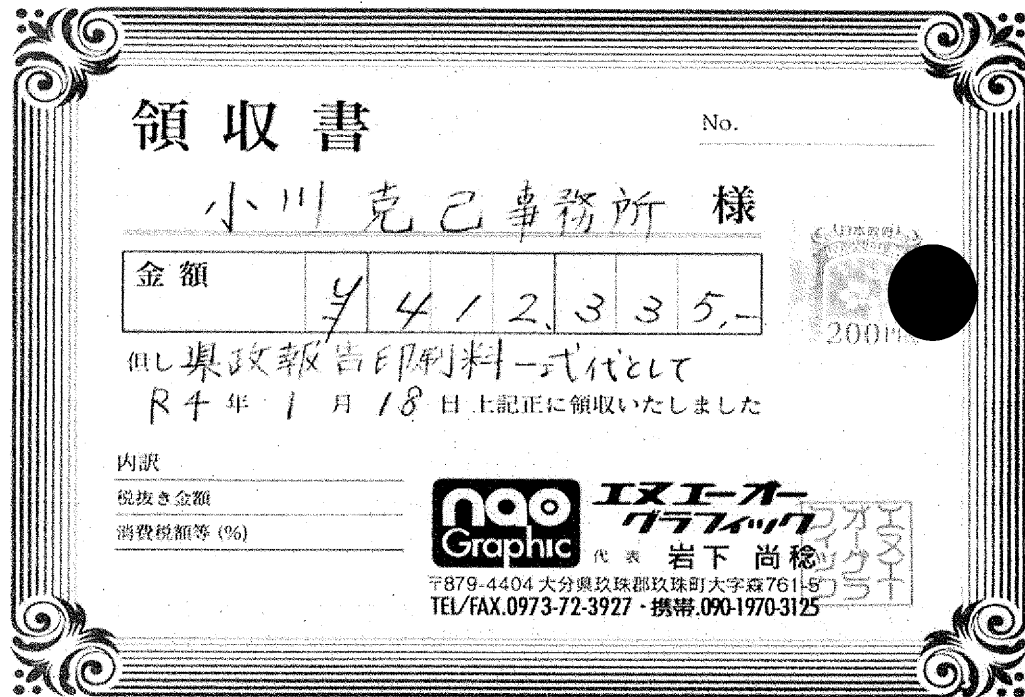 領収書
No.
小川克己事務所 様
金額 ¥412,335,-
但し 県政報告印刷料一式代として
R4年1月18日 上記正に領収いたしました
日本政府
200円
内訳
税抜き金額
消費税額等(%)
nao
Graphic
エヌエーオー
グラフィック
代表 岩下 尚稔
〒879-4404 大分県玖珠郡玖珠町大字森761-5
TEL/FAX.0973-72-3927・携帯.090-1970-3125
エヌエー
オーグラ
フィック